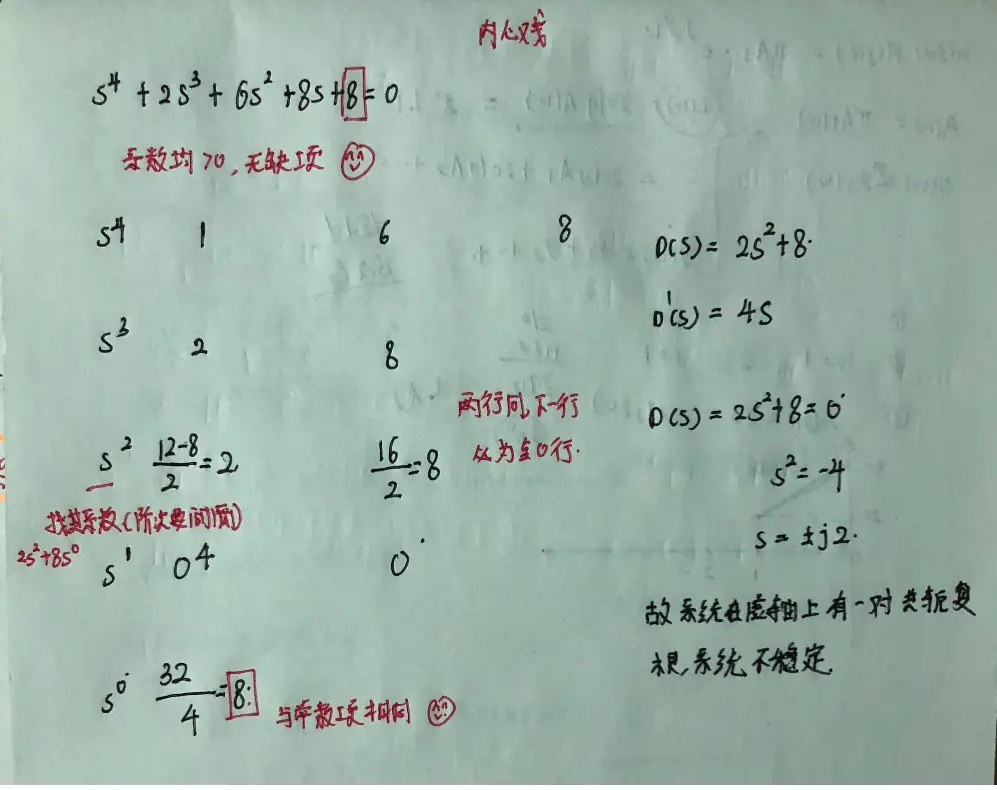 内心戏
s⁴ + 2s³ + 6s² + 8s + 8 = 0
系数均>0,无缺项
s⁴ 1 6 8
s³ 2 8
s² (12-8)/2 = 2 16/2 = 8
找其系数(阶次要间隔)
2s²+8s⁰
s¹ 0 4 0
s⁰ 32/4 = 8
与常数项相同
两行同,下一行
必为全0行.
D(s) = 2s²+8
D'(s) = 4s
D(s) = 2s²+8 = 0
s² = -4
s = ±j2.
故系统在虚轴上有一对共轭复
根,系统不稳定